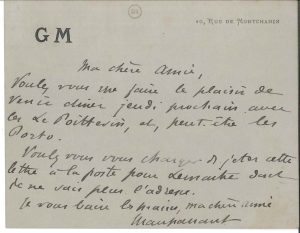 GM
10, RUE DE MONTCHANIN
Ma chère Amie,
Voulez vous me faire le plaisir de
venir dîner jeudi prochain avec
les Le Poittevin, et, peut-être les
Porto.
Voulez vous vous charger de jeter cette
lettre à la poste pour dont
je ne sais plus l'adresse.
Je vous baise les mains, ma chère amie
Maupassant